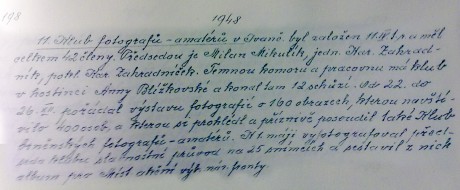 198
1948
11. Klub fotografů-amatérů v Ivano byl založen 11.IV.t.r. a měl
celkem 42 členy. Předsedou je Milan Mikulík, jedn. Kar. Zahrad-
ník, pokl. Kar. Zahradníček. Temnou komoru a pracovnu má klub
v hostinci Anny Blížkovské a konal tam 12 schůzí. Od 22. do
26. pořádal výstavu fotografií o 160 obrazech, kterou navští-
vilo 400 osob, a kterou si prohlédl a příznivě posoudil také Klub
brněnských fotografů-amatérů. K 1. máji vyfotografoval před-
seda klubu slavnostní průvod na 25 snímcích a sestavil z nich
album pro Míst. akční výb. nár. fronty.